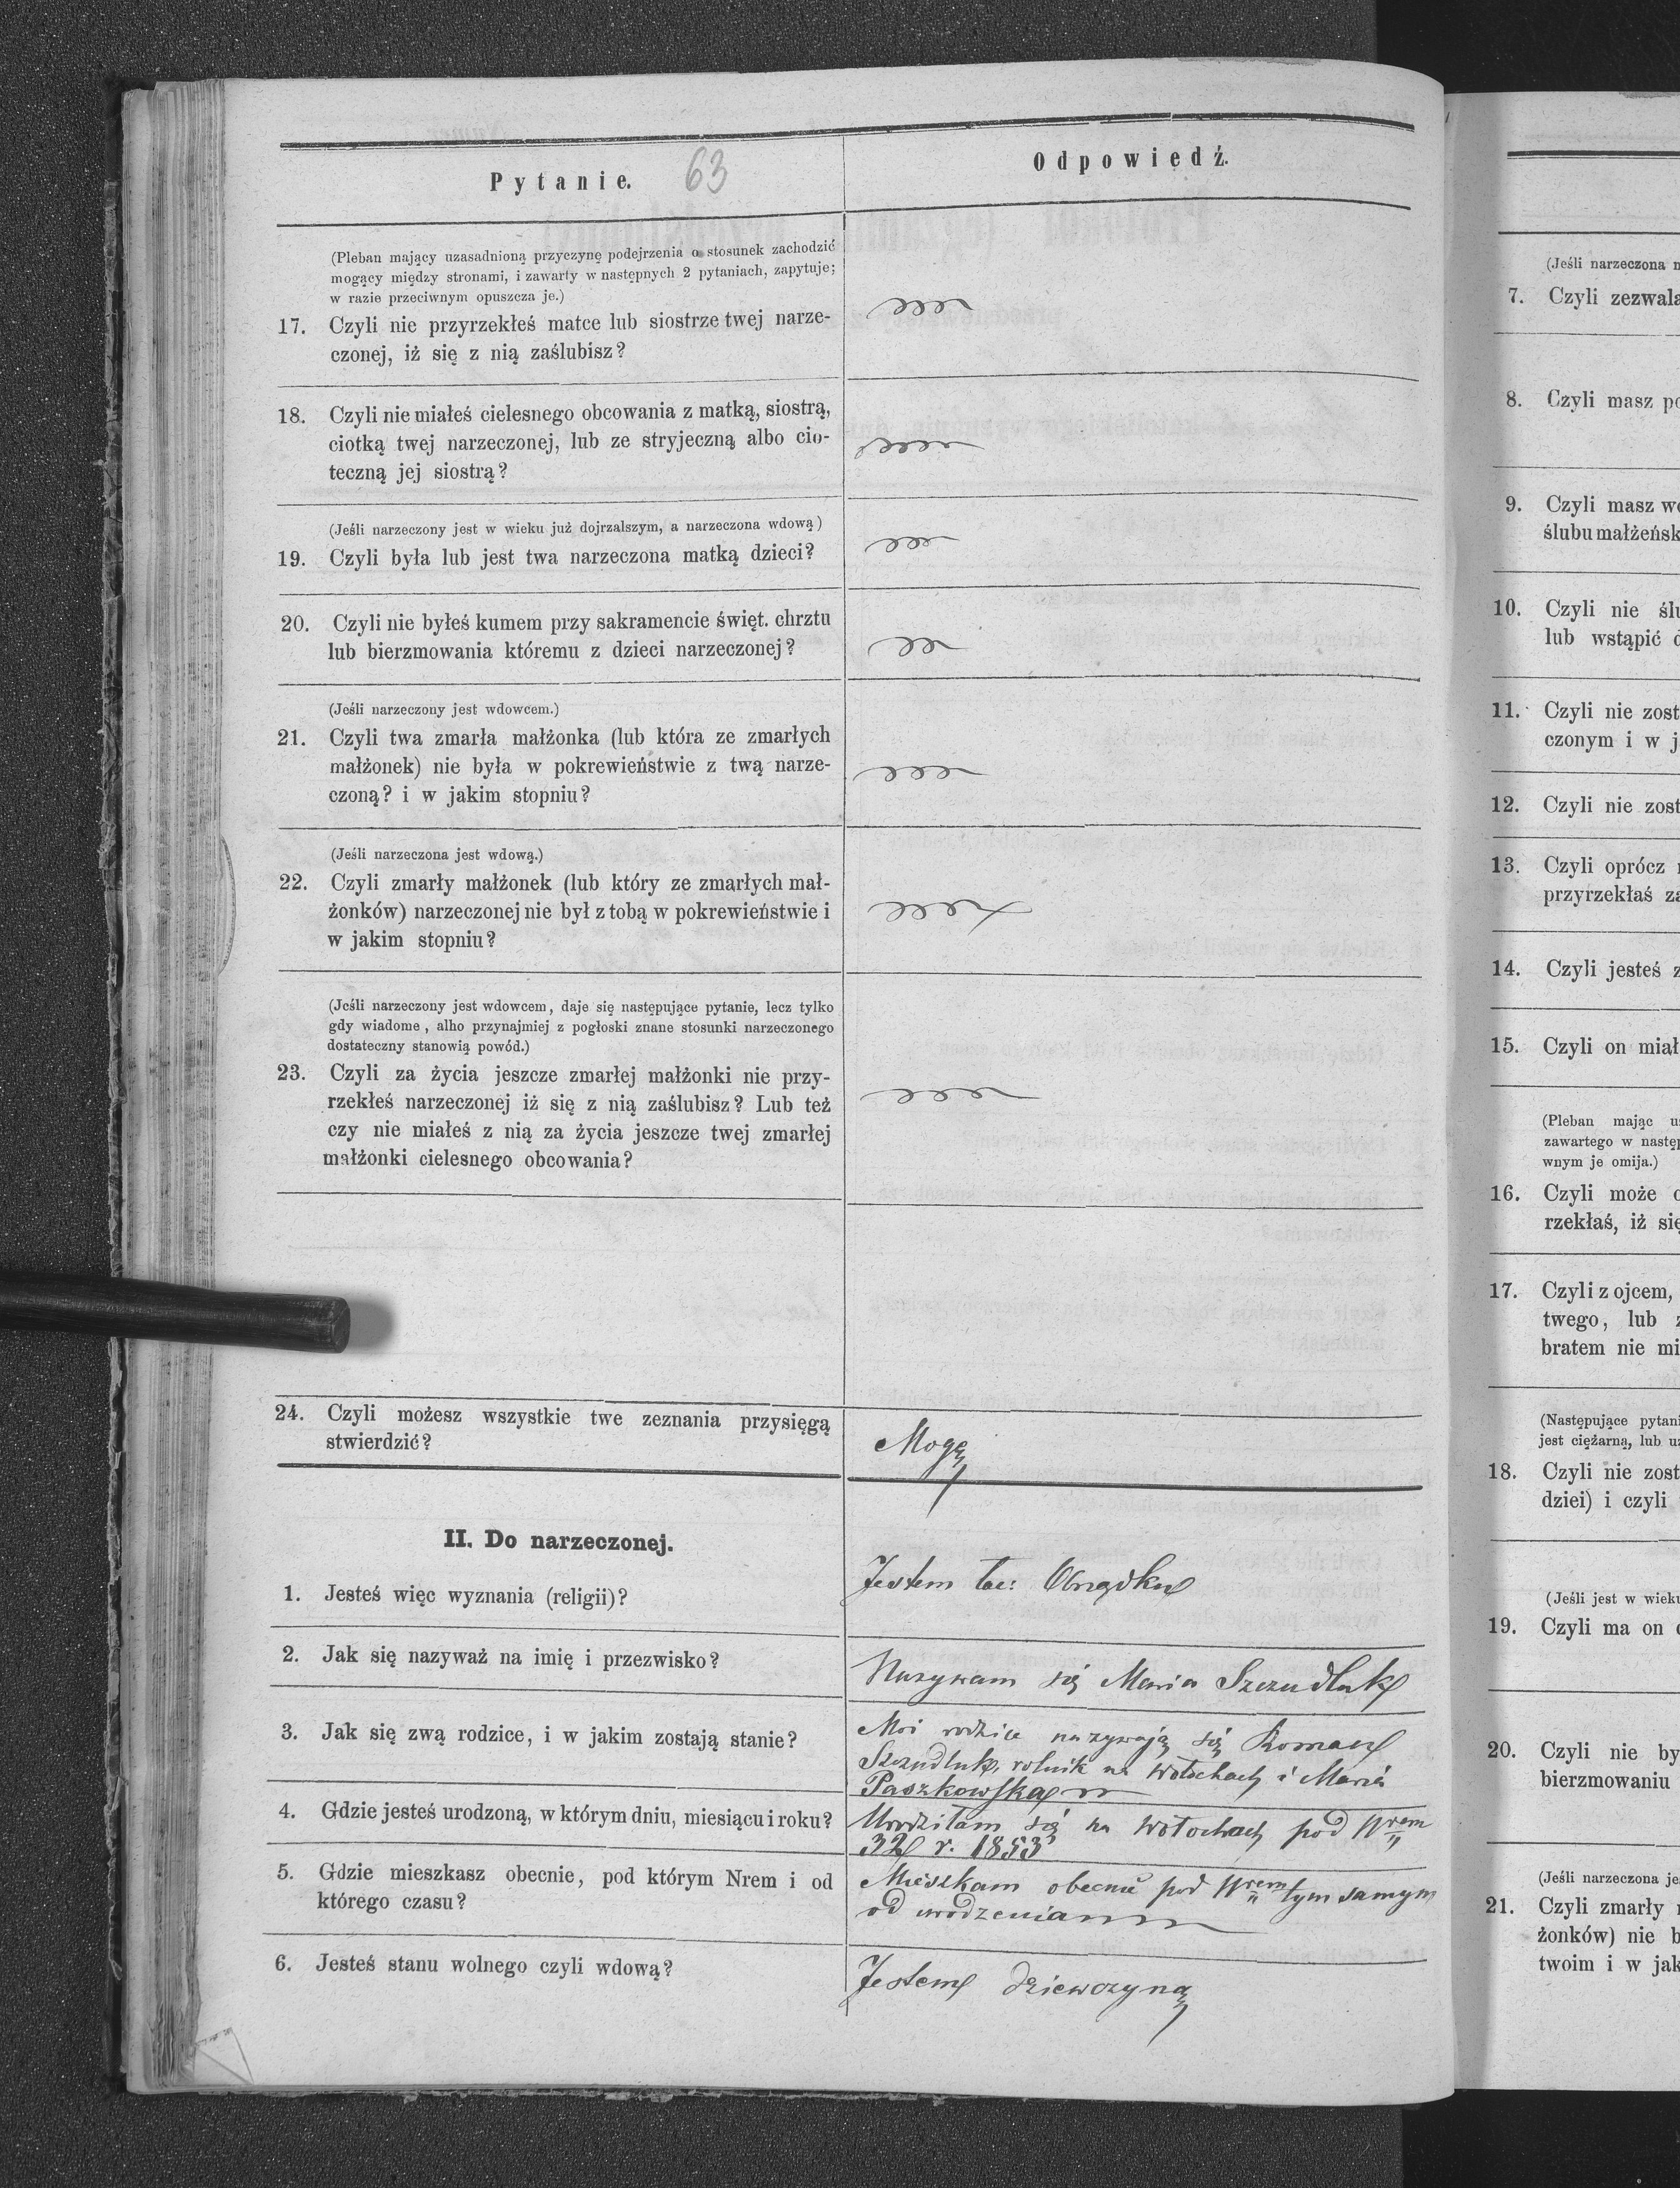 Pytanie. 63
Odpowiedź.
(Pleban mający uzasadnioną przyczynę podejrzenia o stosunek zachodzić
mogący między stronami, i zawarty w następnych 2 pytaniach, zapytuje;
w razie przeciwnym opuszcza je.)
17. Czyli nie przyrzekłeś matce lub siostrze twej narze-
czonej, iż się z nią zaślubisz?
18. Czyli nie miałeś cielesnego obcowania z matką, siostrą,
ciotką twej narzeczonej, lub ze stryjeczną albo cio-
teczną jej siostrą?
(Jeśli narzeczony jest w wieku już dojrzalszym, a narzeczona wdową)
19. Czyli była lub jest twa narzeczona matką dzieci?
20. Czyli nie byłeś kumem przy sakramencie święt. chrztu
lub bierzmowania któremu z dzieci narzeczonej?
(Jeśli narzeczony jest wdowcem.)
21. Czyli twa zmarła małżonka (lub która ze zmarłych
małżonek) nie była w pokrewieństwie z twą narze-
czoną? i w jakim stopniu?
(Jeśli narzeczona jest wdową.)
22. Czyli zmarły małżonek (lub który ze zmarłych mał-
żonków) narzeczonej nie był z tobą w pokrewieństwie i
w jakim stopniu?
(Jeśli narzeczony jest wdowcem, daje się następujące pytanie, lecz tylko
gdy wiadome, alho przynajmiej z pogłoski znane stosunki narzeczonego
dostateczny stanowią powód.)
23. Czyli za życia jeszcze zmarłej małżonki nie przy-
rzekłeś narzeczonej iż się z nią zaślubisz? Lub też
czy nie miałeś z nią za życia jeszcze twej zmarłej
małżonki cielesnego obcowania?
24. Czyli możesz wszystkie twe zeznania przysięgą
stwierdzić?
Mogę
II. Do narzeczonej.
1. Jesteś więc wyznania (religii)?
Jestem łac: Obrządku
2. Jak się nazyważ na imię i przezwisko?
Nazywam się Maria Szczudluk
3. Jak się zwą rodzice, i w jakim zostają stanie?
Moi rodzice nazywają się Roman
Szczudluk, rolnik na Wołochach i Maria
Paszkowska
4. Gdzie jesteś urodzoną, w którym dniu, miesiącu i roku?
Urodziłam się na Wołochach pod Nrem
32 r. 1853
5. Gdzie mieszkasz obecnie, pod którym Nrem i od
którego czasu?
Mieszkam obecnie pod Nrem tym samym
od urodzenia
6. Jesteś stanu wolnego czyli wdową?
Jestem dziewczyną
(Jeśli narzeczona
7. Czyli zezwala
8. Czyli masz
9. Czyli masz
ślubu małżeńsk
10. Czyli nie
lub wstąpić
11. Czyli nie zost
czonym i w j
12. Czyli nie zost
13. Czyli oprócz
przyrzekłaś
14. Czyli jesteś
15. Czyli on miał
(Pleban mając
zawartego w następ
wnym je omija.)
16. Czyli może
rzekłaś, iż się
17. Czyli z ojcem,
twego, lub
bratem nie mi
(Następujące pytani
jest ciężarną, lub
18. Czyli nie zost
dziei) i czyli
(Jeśli jest w wieku
19. Czyli ma on
20. Czyli nie by
bierzmowaniu
(Jeśli narzeczona je
21. Czyli zmarły
żonków) nie b
twoim i w jak